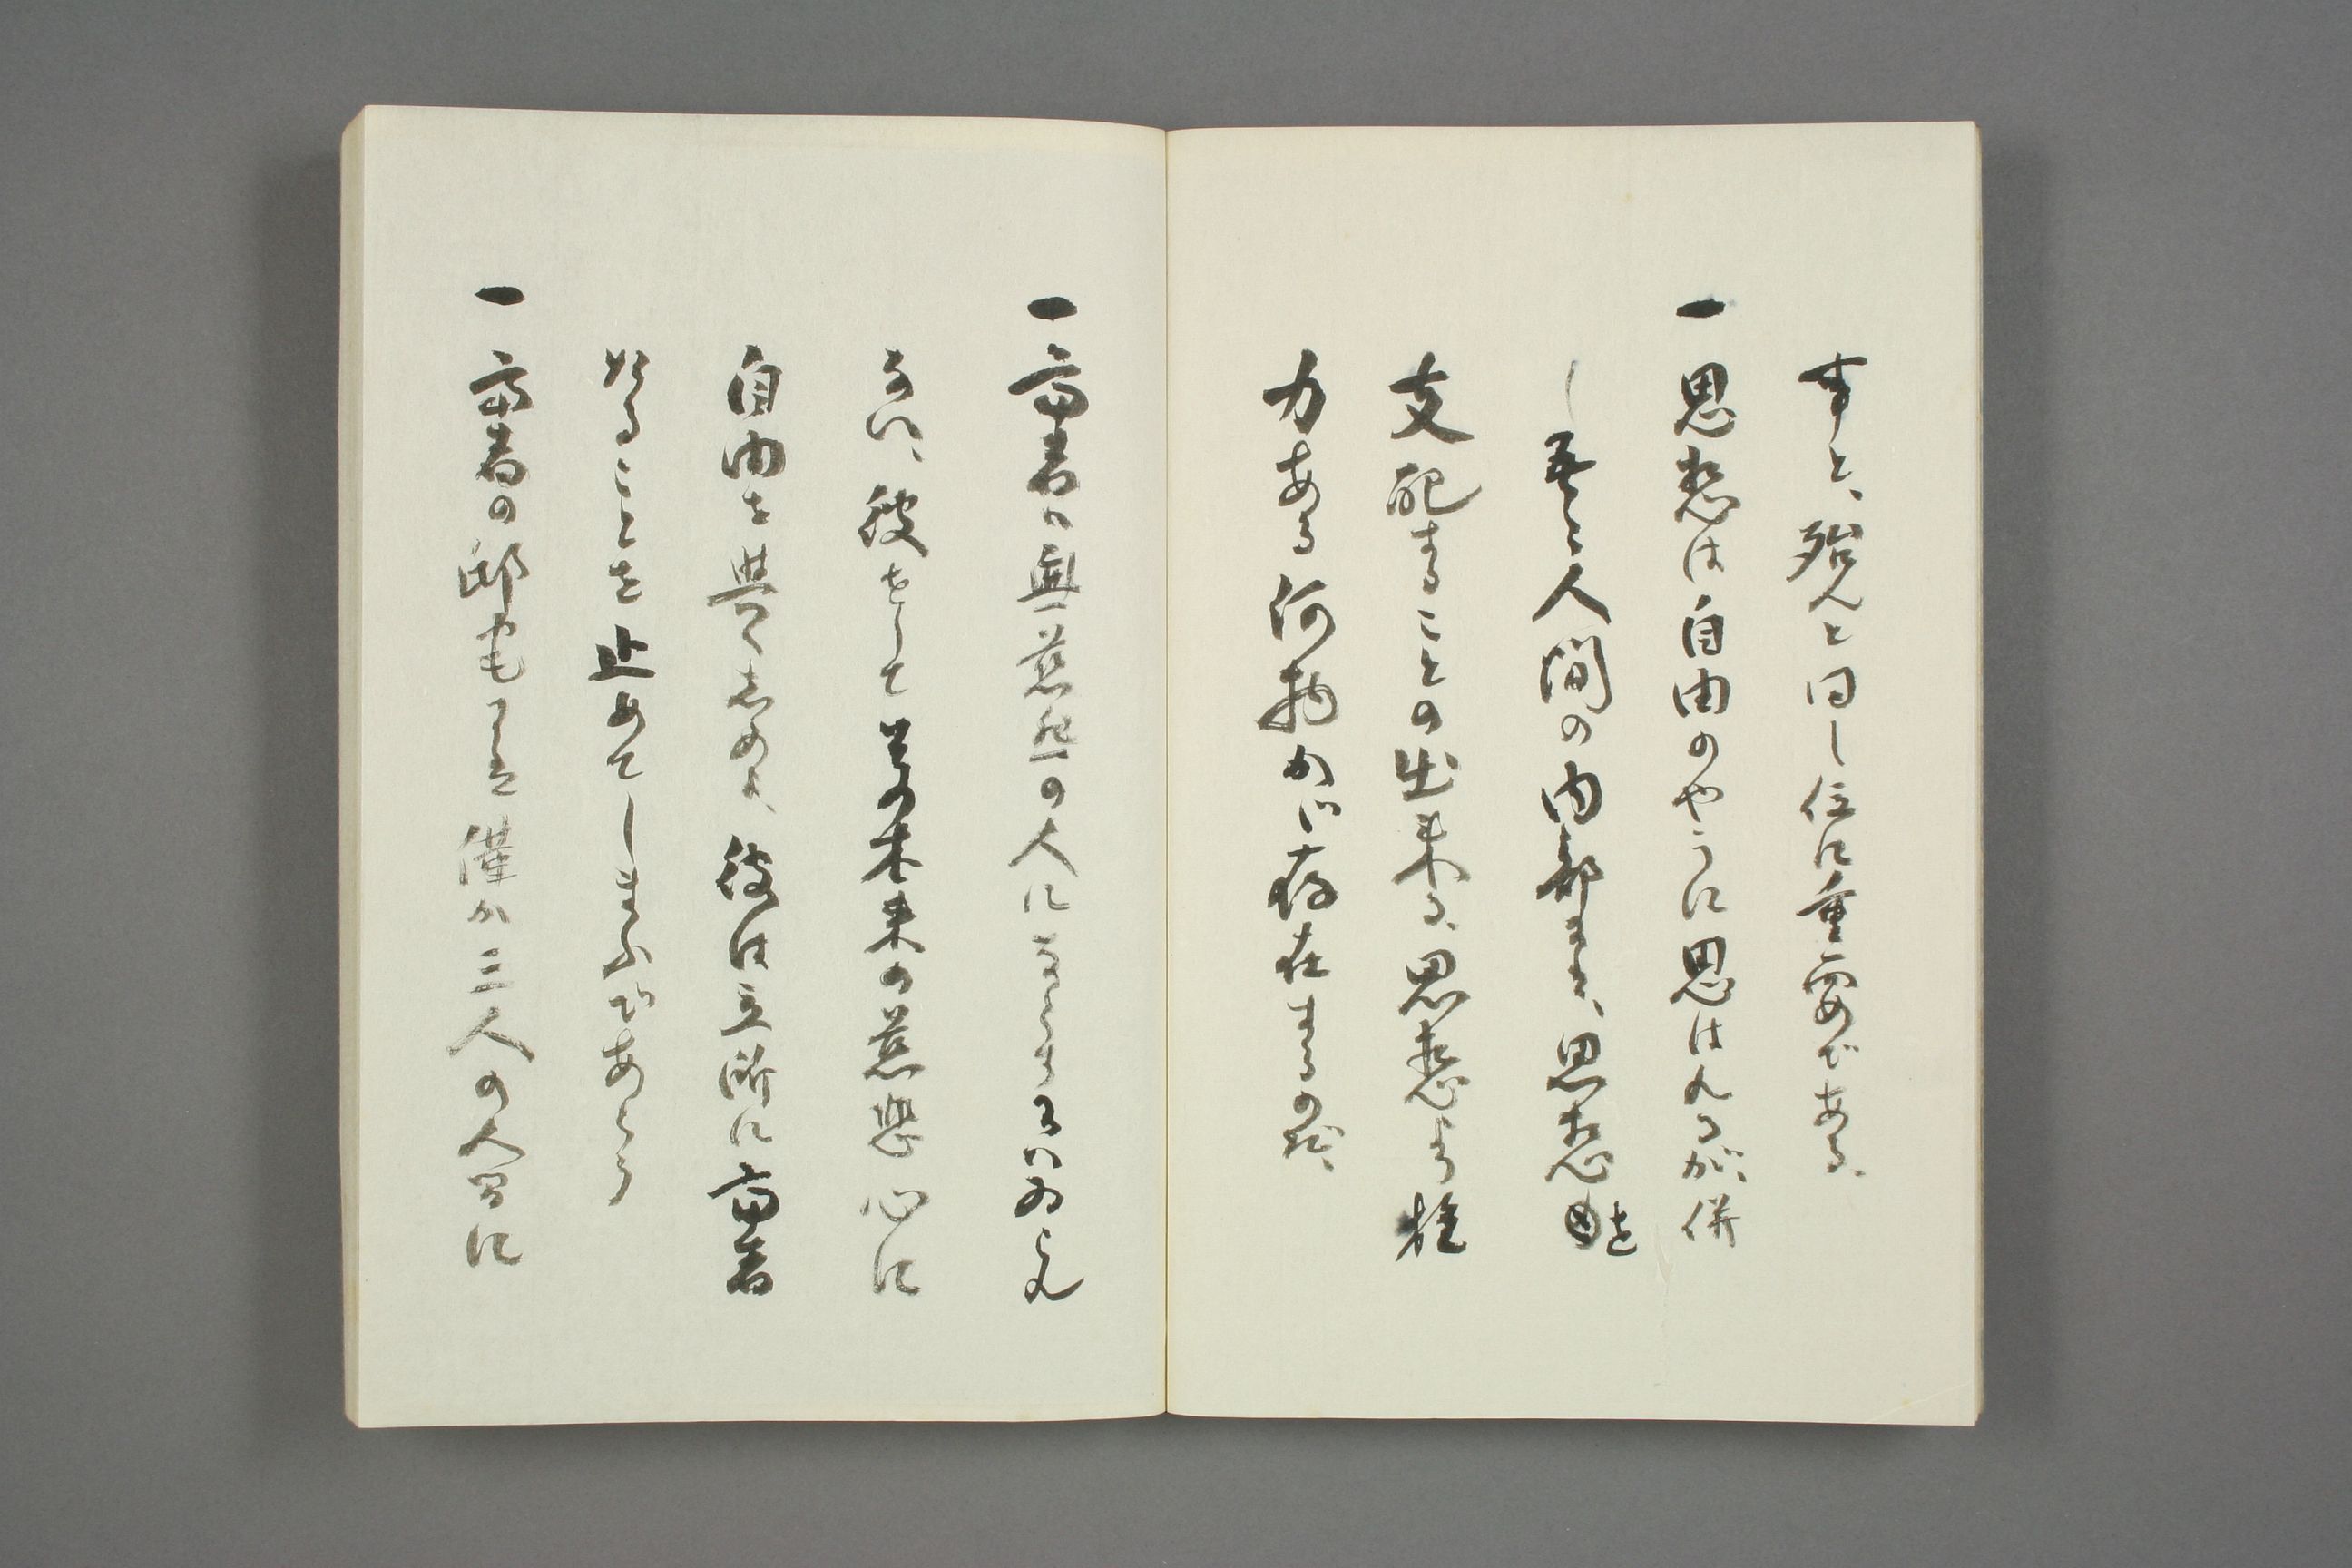 事と、殆んと同し位に重要である、
一 思想は自由のやうに思はれるが、併
し吾々人間の内部には、思想を
支配することの出来る、思想より強
力ある何物かゞ存在するのだ、
一 富者の無慈悲の人になる
ない、彼をして其の本来の慈悲心に
自由を與へしめよ、彼は立所に富者
たることを止めてしまふであらう
一 富者の邸宅には僅か三人の人間に